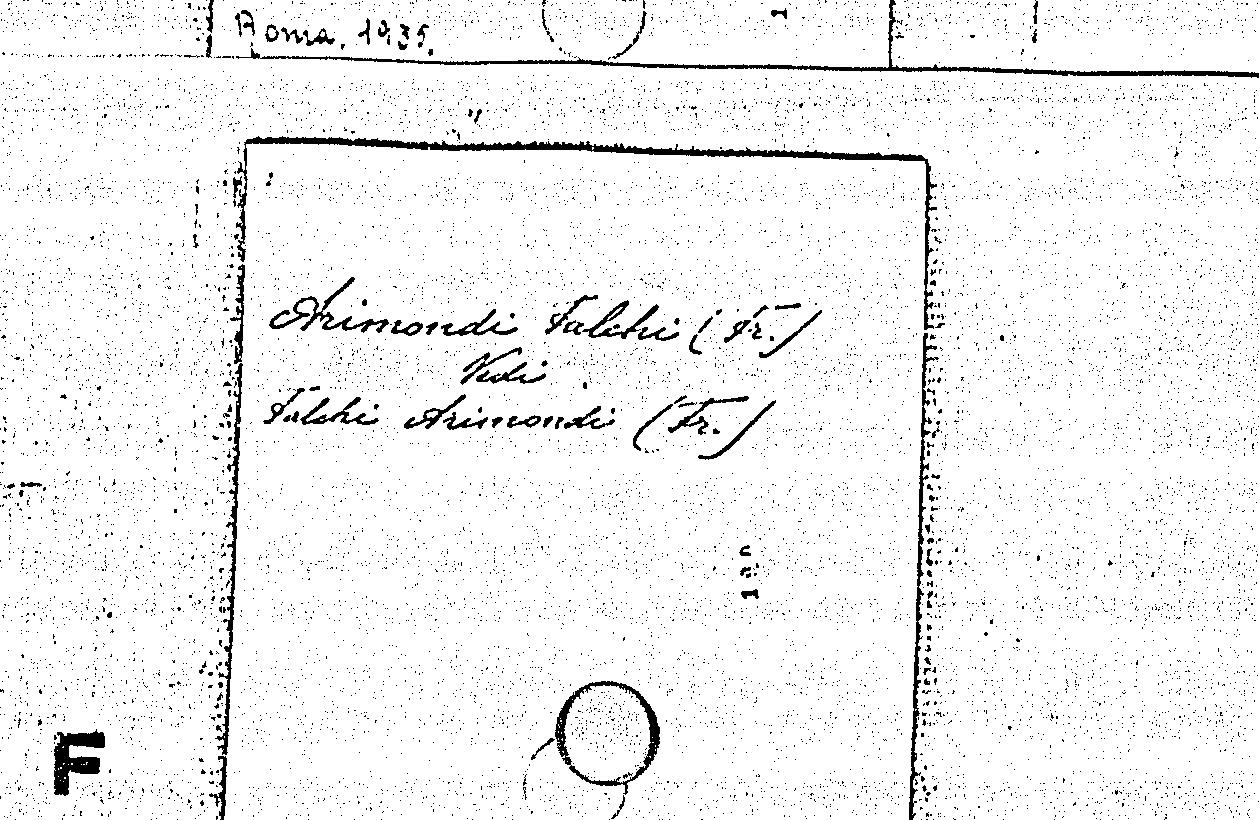 Roma, 1935.
Arimondi Falchi (Fr.)
Vedi
Falchi Arimondi (Fr.)
F